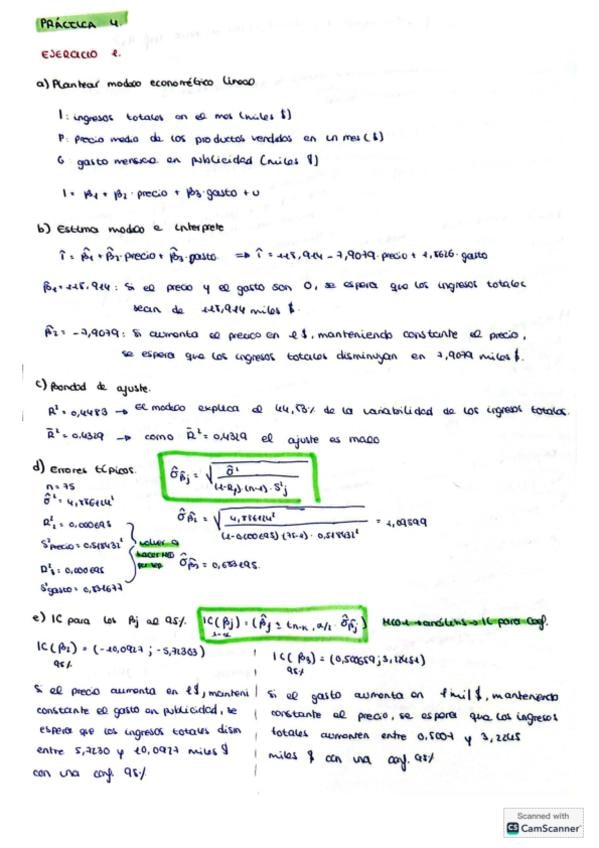 PRÁCTICA 4.
EJERCICIO 1.
a) Plantear modelo econométrico lineal
I: ingresos totales en el mes (miles $)
P: precio medio de los productos vendidos en un mes ($)
G: gasto mensual en publicidad (miles $)
I = β1 + β2 · precio + β3 · gasto + u
b) Estima modelo e interprete
Î = β̂1 + β̂2 · precio + β̂3 · gasto ⇒ Î = 118,914 - 7,9079 · precio + 1,8626 · gasto
β̂1 = 118,914: Si el precio y el gasto son 0, se espera que los ingresos totales
sean de 118,914 miles $.
β̂2 = -7,9079: Si aumenta el precio en 1$, manteniendo constante el precio,
se espera que los ingresos totales disminuyan en 7,9079 miles $.
c) Bondad de ajuste.
R² = 0,4483 → El modelo explica el 44,83% de la variabilidad de los ingresos totales.
R̄² = 0,4329 → como R̄² = 0,4329 el ajuste es malo
d) Errores típicos.
σ̂β̂j = √ σ̂² / (1-Rj²)·(n-1)·S²j
n = 75
σ̂² = 4,886124²
R²2 = 0,000695
S²precio = 0,518432²
R²3 = 0,000695
S²gasto = 0,831677
volver a
hacer MCO
por sep.
σ̂β̂2 = √ 4,886124² / (1-0,000695)(75-1)·0,518432² = 1,09599
σ̂β̂3 = 0,683295.
e) IC para los βj al 95%.
IC(βj) = (β̂j ± tn-k, α/2 · σ̂β̂j)
1-α
MCO → análisis → IC para coef.
IC(β2) = (-10,0927; -5,72303)
95%
Si el precio aumenta en 1$, manteni
constante el gasto en publicidad, se
espera que los ingresos totales dism
entre 5,7230 y 10,0927 miles $
con una conf. 95%
IC(β3) = (0,500659; 3,22451)
95%
Si el gasto aumenta en 1 mil $, manteniendo
constante el precio, se espera que los ingresos
totales aumenten entre 0,5007 y 3,2245
miles $ con una conf. 95%
Scanned with
CS CamScanner